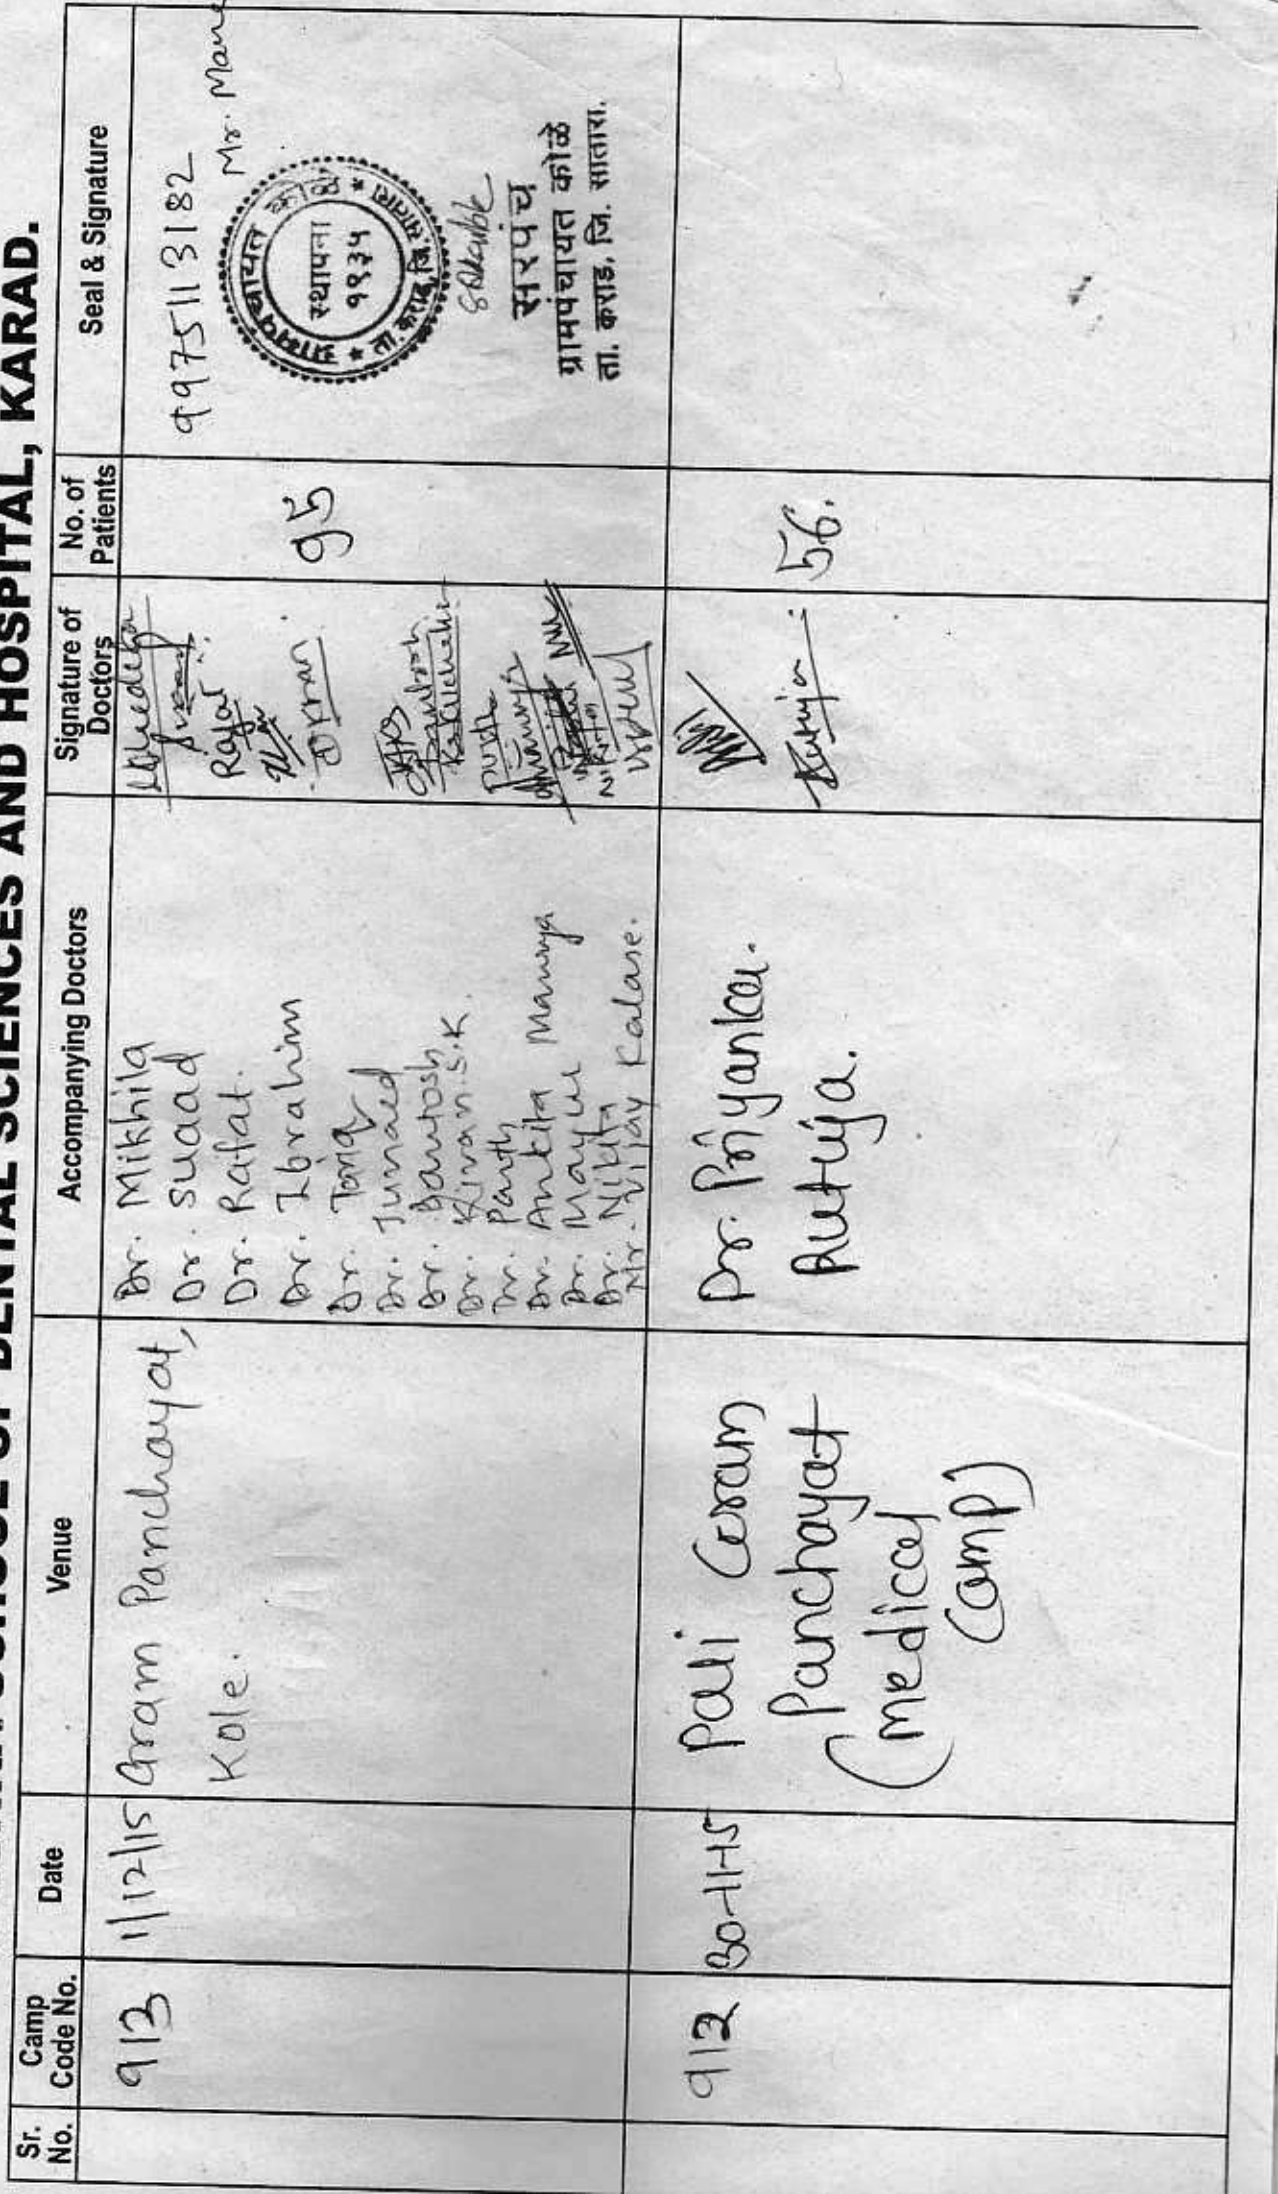 SCHOOL OF DENTAL SCIENCES AND HOSPITAL, KARAD.
Sr. No.
Camp Code No.
Date
Venue
Accompanying Doctors
Signature of Doctors
No. of Patients
Seal & Signature
913
1/12/15
Gram Panchayat,
Kole.
Dr. Mikhila
Dr. Suaad
Dr. Rafat.
Dr. Ibrahim
Dr. Tariq
Dr. Junaed
Dr. Santosh
Dr. Kiran.S.K.
Dr. Parth
Dr. Ankita Maurya
Dr. Mayur
Dr. Nikita
Mr. Vijay Kalase.
Rafat
Parth
95
9975113182
Mr. Mane
ग्रामपंचायत कोळे
स्थापना
१९३५
ता. कराड, जि. सातारा
सरपंच
ग्रामपंचायत कोळे
ता. कराड, जि. सातारा.
912
30-11-15
Pali Gram
Panchayat
(medical
camp)
Dr. Priyanka.
Rutuja.
Rutuja
56.